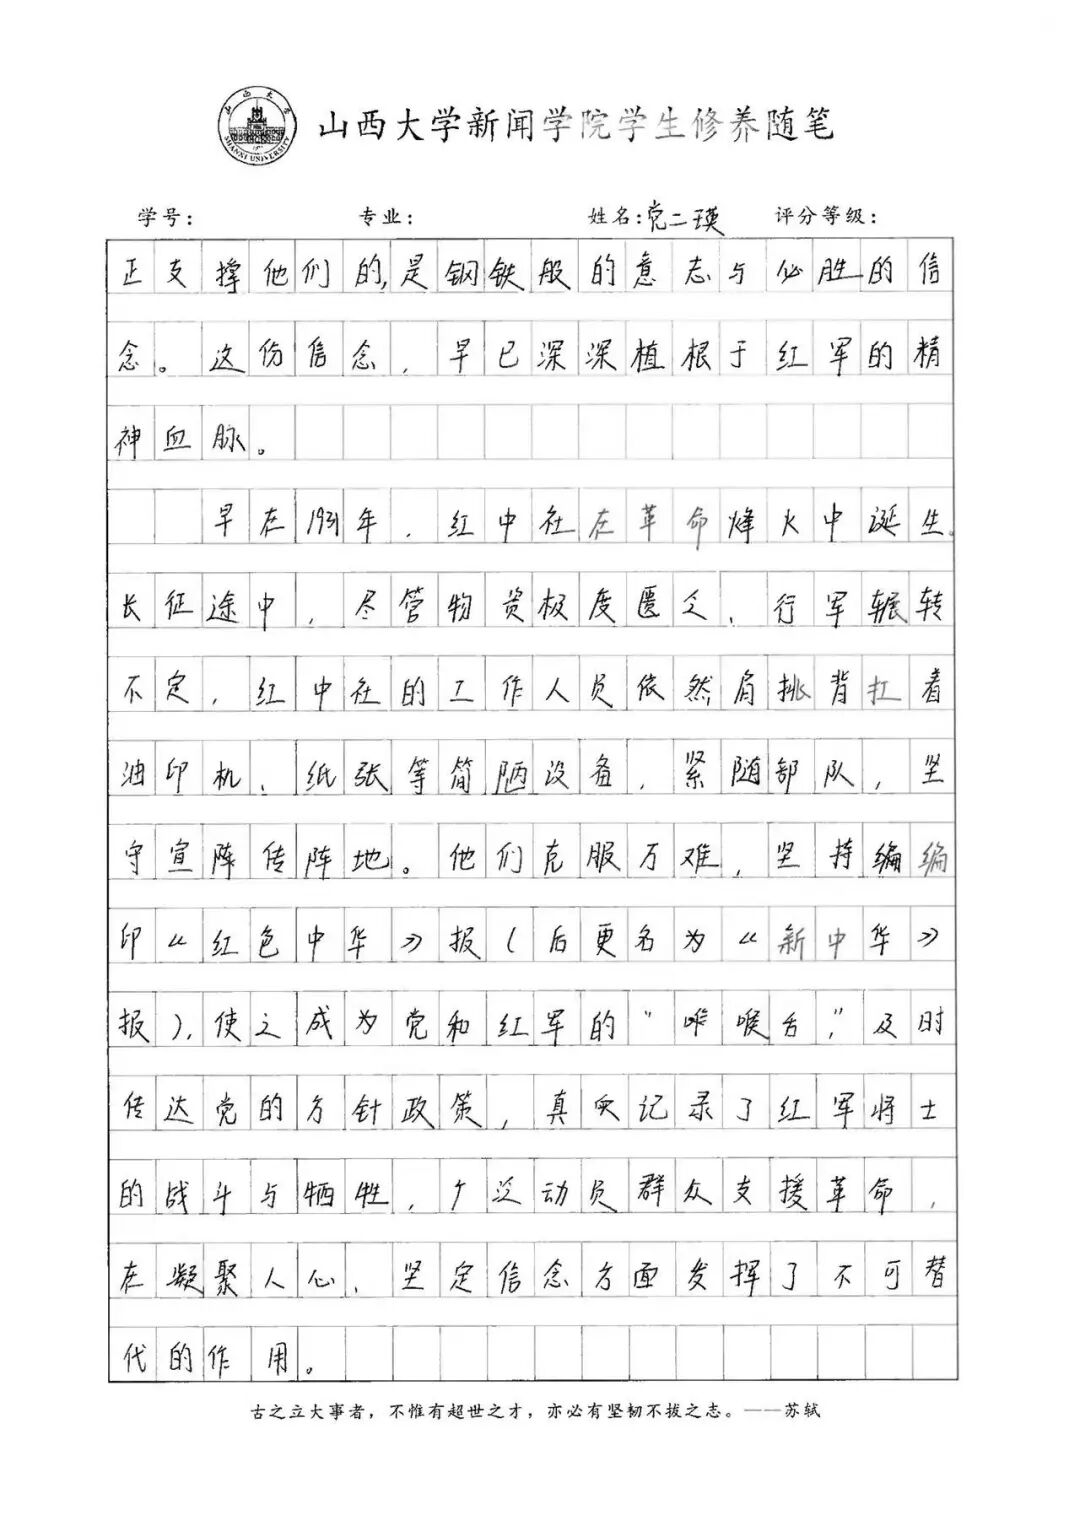 山西大学
SHANXI UNIVERSITY
山西大学新闻学院学生修养随笔
学号: 专业: 姓名:党二瑛 评分等级:
正支撑他们的,是钢铁般的意志与必胜的信
念。这份信念,早已深深植根于红军的精
神血脉。
早在1931年,红中社在革命烽火中诞生。
长征途中,尽管物资极度匮乏、行军辗转
不定,红中社的工作人员依然肩挑背扛着
油印机、纸张等简陋设备,紧随部队,坚
守宣阵传阵地。他们克服万难,坚持编编
印《红色中华》报(后更名为《新中华》
报),使之成为党和红军的“唯喉舌”,及时
传达党的方针政策,真实记录了红军将士
的战斗与牺牲,广泛动员群众支援革命,
在凝聚人心、坚定信念方面发挥了不可替
代的作用。
古之立大事者,不惟有超世之才,亦必有坚韧不拔之志。——苏轼